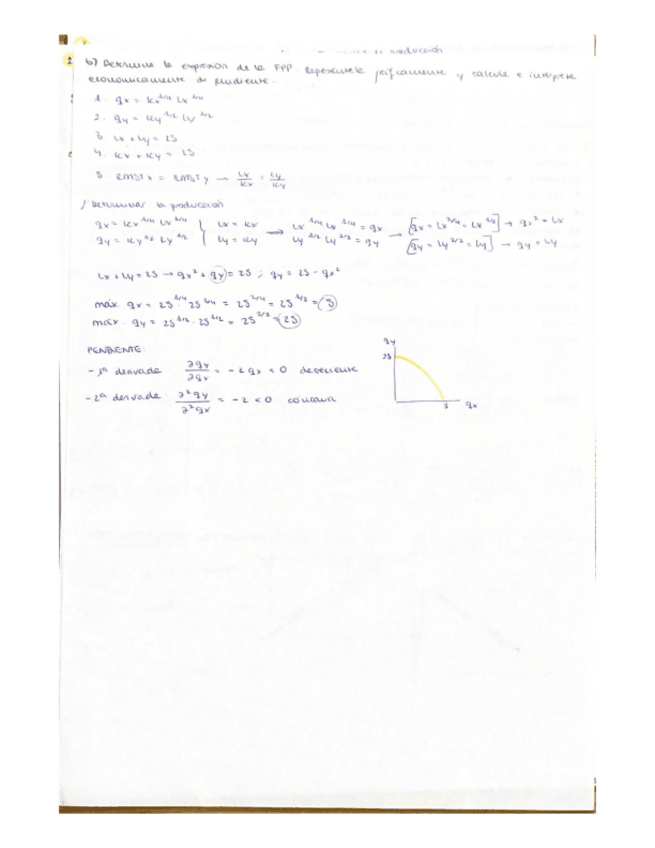 de producción
b) Determine la expresión de la FPP. Represéntela gráficamente y calcule e interprete
económicamente su pendiente.
1. qx = Kx^1/4 Lx^1/4
2. qy = Ky^1/2 Ly^1/2
3. Lx + Ly = 25
4. Kx + Ky = 25
5. RMSTx = RMSTy → Lx/Kx = Ly/Ky
Determinar la producción
qx = Kx^1/4 Lx^1/4 } Lx = Kx → Lx^1/4 Lx^1/4 = qx → [qx = Lx^2/4 = Lx^1/2] → qx² = Lx
qy = Ky^1/2 Ly^1/2 } Ly = Ky → Ly^1/2 Ly^1/2 = qy → [qy = Ly^2/2 = Ly] → qy = Ly
Lx + Ly = 25 → qx² + qy = 25 ; qy = 25 - qx²
máx. qx = 25^1/4 · 25^1/4 = 25^2/4 = 25^1/2 = 5
máx. qy = 25^1/2 · 25^1/2 = 25^2/2 = 25
PENDIENTE:
- 1ª derivada ∂qy/∂qx = - 2qx < 0 decreciente
- 2ª derivada ∂²qy/∂²qx = - 2 < 0 cóncava
qy
25
5 qx